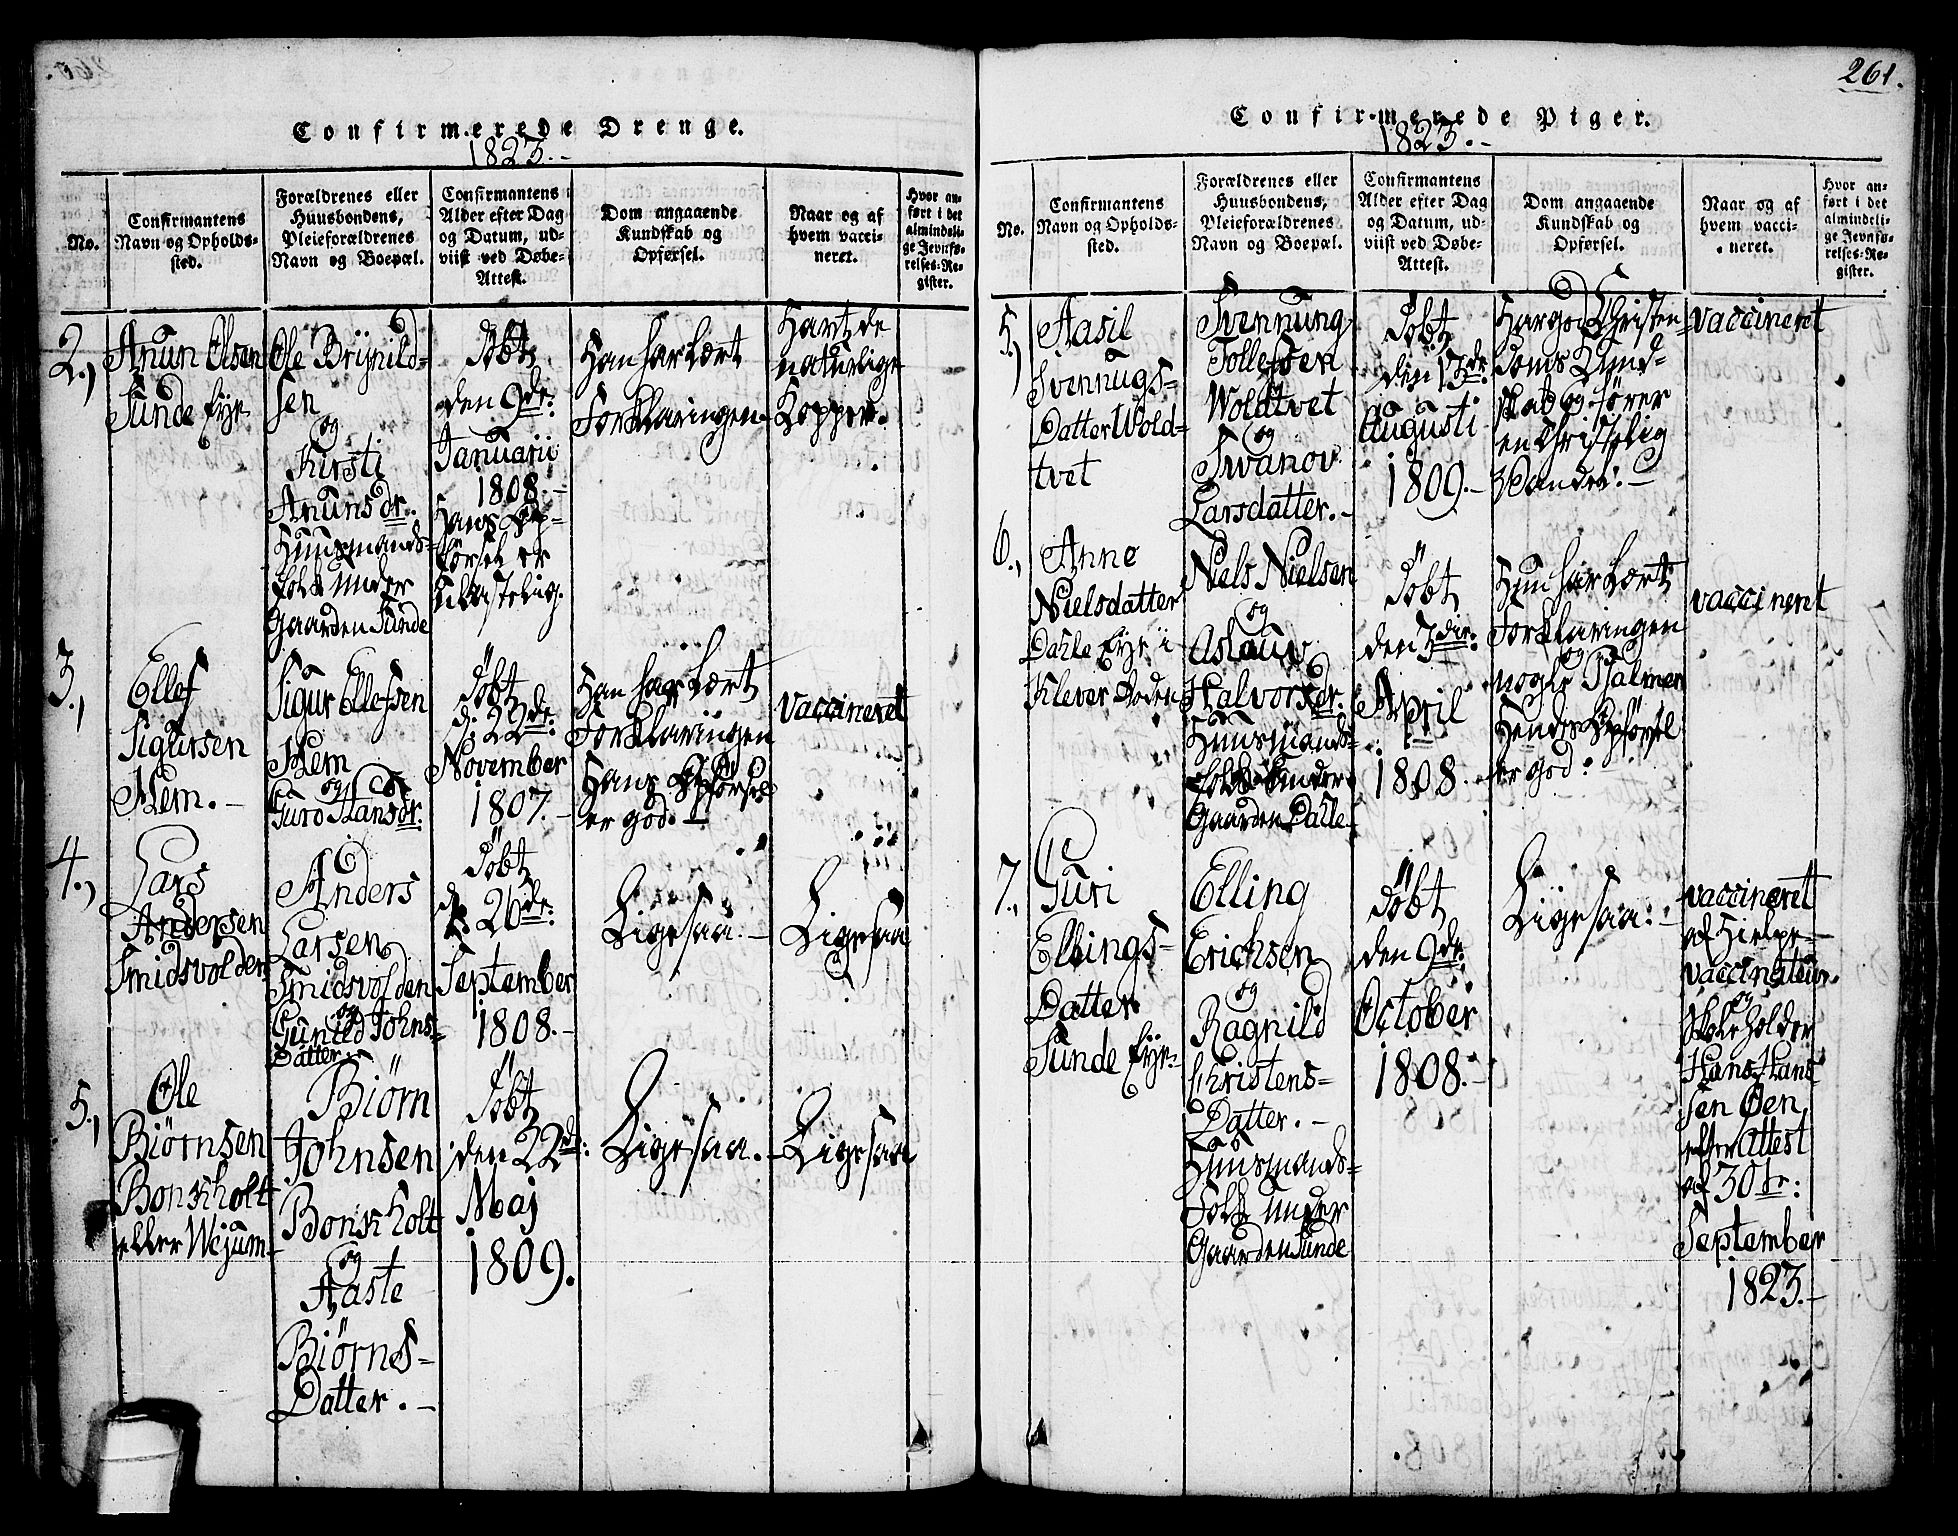 261.
Confirmerede Drenge.
1823.-
No.
Confirmantens
Navn og Opholds-
sted.
Forældrenes eller
Huusbondens,
Pleieforældrenes
Navn og Boepæl.
Confirmantens
Alder efter Dag
og Datum, ud-
viist ved Døbe-
Attest.
Dom angaaende
Kundskab og
Opførsel.
Naar og af
hvem vacci-
neret.
Hvor an-
ført i det
almindeli-
ge Jevnfø-
relses-Re-
gister.
2.,
Anun Olsen
Sunde Eye
Ole Brynild-
sen
og
Kirsti
Anunsdr.
Huusmands-
folk under
Gaarden Sunde
døbt
den 9de:
Januarii
1808.-
Hans Op-
førsel er
Han har lært
Forklaringen
Havt de
naturlige
Kopper.
3.,
Ellef
Sigursen
Mem.-
Sigur Ellefsen
Mem
og
Guro Hansdr.
døbt
d. 22de:
November
1807.-
Han har lært
Forklaringen
Hans Opførsel
er god.-
vaccineret
4.,
Lars
Andersen
Smidsvolden
Anders
Larsen
Smidsvolden
og
Gunild Johns-
Datter.-
døbt
d. 26de:
September
1808.-
Ligesaa.-
Ligesaa
5.,
Ole
Biørnsen
Bonsholt
eller Wejum-
Biørn
Johnsen
Bonsholt
og
Aaste
Biørns-
Datter.-
døbt
den 22d:
Maj
1809.
Ligesaa.-
Ligesaa
Confirmerede Piger.
1823.-
No.
Confirmantens
Navn og Opholds-
sted.
Forældrenes eller
Huusbondens,
Pleieforældrenes
Navn og Boepæl.
Confirmantens
Alder efter Dag
og Datum, ud-
viist ved Døbe-
Attest.
Dom angaaende
Kundskab og
Opførsel.
Naar og af
hvem vacci-
neret.
Hvor an-
ført i det
almindeli-
ge Jevnfø-
relses-Re-
gister.
5.,
Aasil
Svennugs-
Datter Wold-
tvet
Svennung
Tollefsen
Woldtvet
og
Svanov
Larsdatter.-
døbt
den 13de:
Augusti
1809.-
Har god Christen-
doms Kund-
skab og fører
en Christelig
Vandel.-
vaccineret
6.,
Anne
Nielsdatter
Dahle Eye i
Klever Boden
Niels Nielsen
og
Aslauv
Halvorsdr.
Huusmands-
folk under
Gaarden Dahle
døbt
den 3die:
April
1808.
Hun har lært
Forklaringen
og
nogle Psalmer
Hendes Opførsel
er god.
vaccineret
7.,
Guri
Ellings-
Datter
Sunde Eye-
Elling
Erichsen
og
Ragnild
Christens-
Datter.-
Huusmands-
Folk under
Gaarden Sunde
døbt
den 9de:
October
1808.-
Ligesaa.-
vaccineret
af Hielpe-
vaccinateur
og
Skoleholder
Hans Hans
sen Øen
efter Attest
af 30te:
September
1823.-